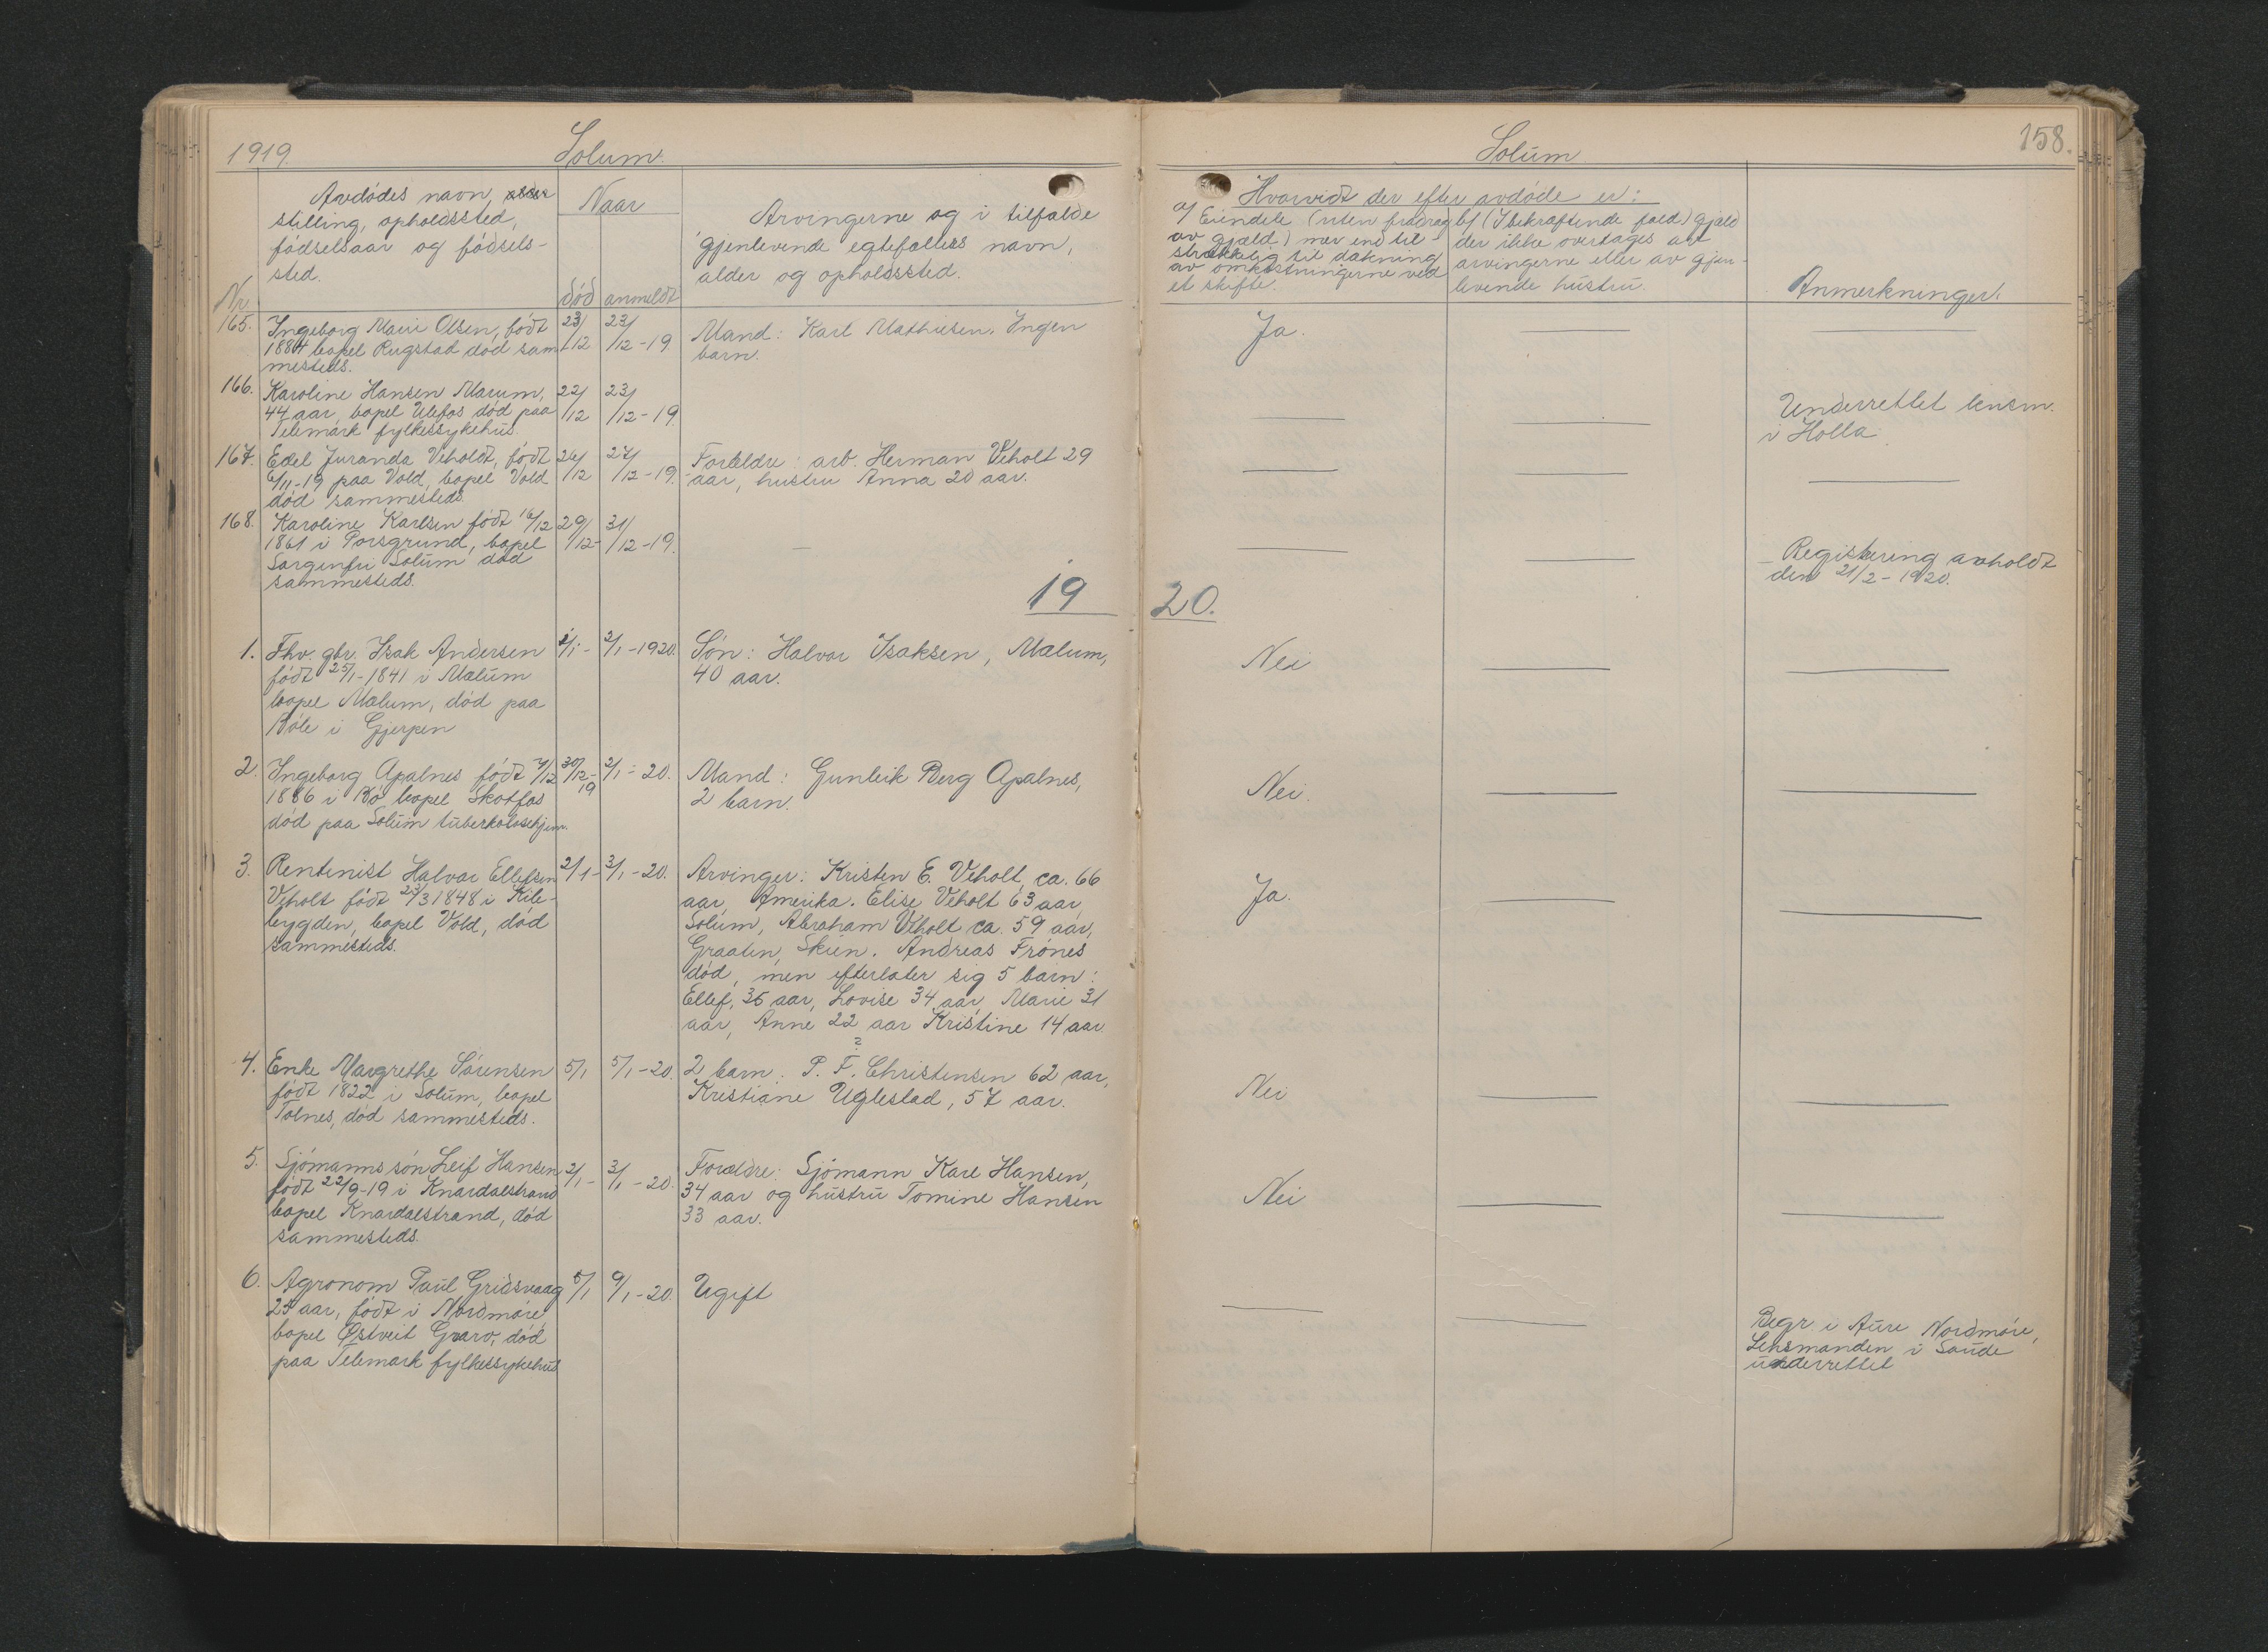 1919 Solum.
Avdødes navn,
stilling, opholdssted,
fødselsaar og fødsels-
sted.
Nr.
Naar
død anmeldt
Arvingerne og i tilfælde
gjenlevende egtefælles navn,
alder og opholdssted.
165. Ingeborg Marie Olsen, født 23/12 23/12-19 Mand: Karl Mathisen. Ingen
1884 bopel Rugstad død sam- barn.
mesteds.
166. Karoline Hansen Marum, 22/12 23/12-19.
44 aar, bopel Ulefos død paa
Telemark fylkessykehus.
167. Edel Juranda Veholdt, født 26/12 27/12-19. Foreldre: arb. Herman Veholt 29
6/11-19 paa Vold, bopel Vold aar, hustru Anna 20 aar.
død sammesteds.
168. Karoline Karlsen født 16/12 29/12- 31/12-19.
1861 i Porsgrund, bopel
Sorgenfri Solum død
sammesteds.
19
1. Fhv. gbr. Isak Andersen 1/1- 2/1-1920. Søn: Halvor Isaksen, Mælum,
født 25/1-1841 i Mælum 40 aar.
bopel Mælum, død paa
Bøle i Gjerpen
2. Ingeborg Apalnes født 4/12 30/12-19 2/1-20. Mand: Gunleik Berg Apalnes,
1886 i Bø bopel Skotfos 2 barn.
død paa Solum tuberkolosehjem.
3. Rentenist Halvor Ellefsen 2/1- 3/1-20. Arvinger: Kristen E. Veholt, ca. 66
Veholt født 23/3 1848 i Kile- aar, Amerika. Elise Veholt 63 aar,
bygden, bopel Vold, død Solum, Abraham Veholt ca. 59 aar,
sammesteds. Graaten, Skien. Andreas Frønes
død, men efterlater sig 5 barn:
Ellef, 36 aar, Lovise 34 aar, Marie 31
aar, Anne 22 aar Kristine 14 aar.
?
4. Enke Margrethe Sørensen 5/1 5/1-20. 2 barn. P. F. Christensen 62 aar,
født 1822 i Solum, bopel Kristiane Uglestad, 57 aar.
Tolnes, død sammesteds.
5. Sjømanns søn Leif Hansen 2/1- 3/1-20. Foreldre: Sjømann Karl Hansen,
født 22/9-19 i Knardalstrand 34 aar og hustru Tomine Hansen
bopel Knardalstrand, død 33 aar.
sammesteds.
6. Agronom Paul Gridsvaag 5/1 9/1-20. Ugift
27 aar, født i Nordmøre,
bopel Østveit Gvarv, død
paa Telemark fylkessykehus
Solum 158.
Hvorvidt der efter avdøde er:
a/ Eiendele (uten fradrag
av gjæld) mer end til-
strækkelig til dækning
av omkostningerne ved
et skifte.
b/ (I bekræftende fald) gjæld
der ikke overtages av
arvingerne eller av gjen-
levende hustru.
Anmerkninger.
Ja.
Underrettet lensm.
i Holla.
Registrering avholdt
den 21/2-1920.
20.
Nei
Nei.
Ja.
Nei
Nei
Begr. i Aure Nordmøre,
Lensmanden i Saude
underrettet